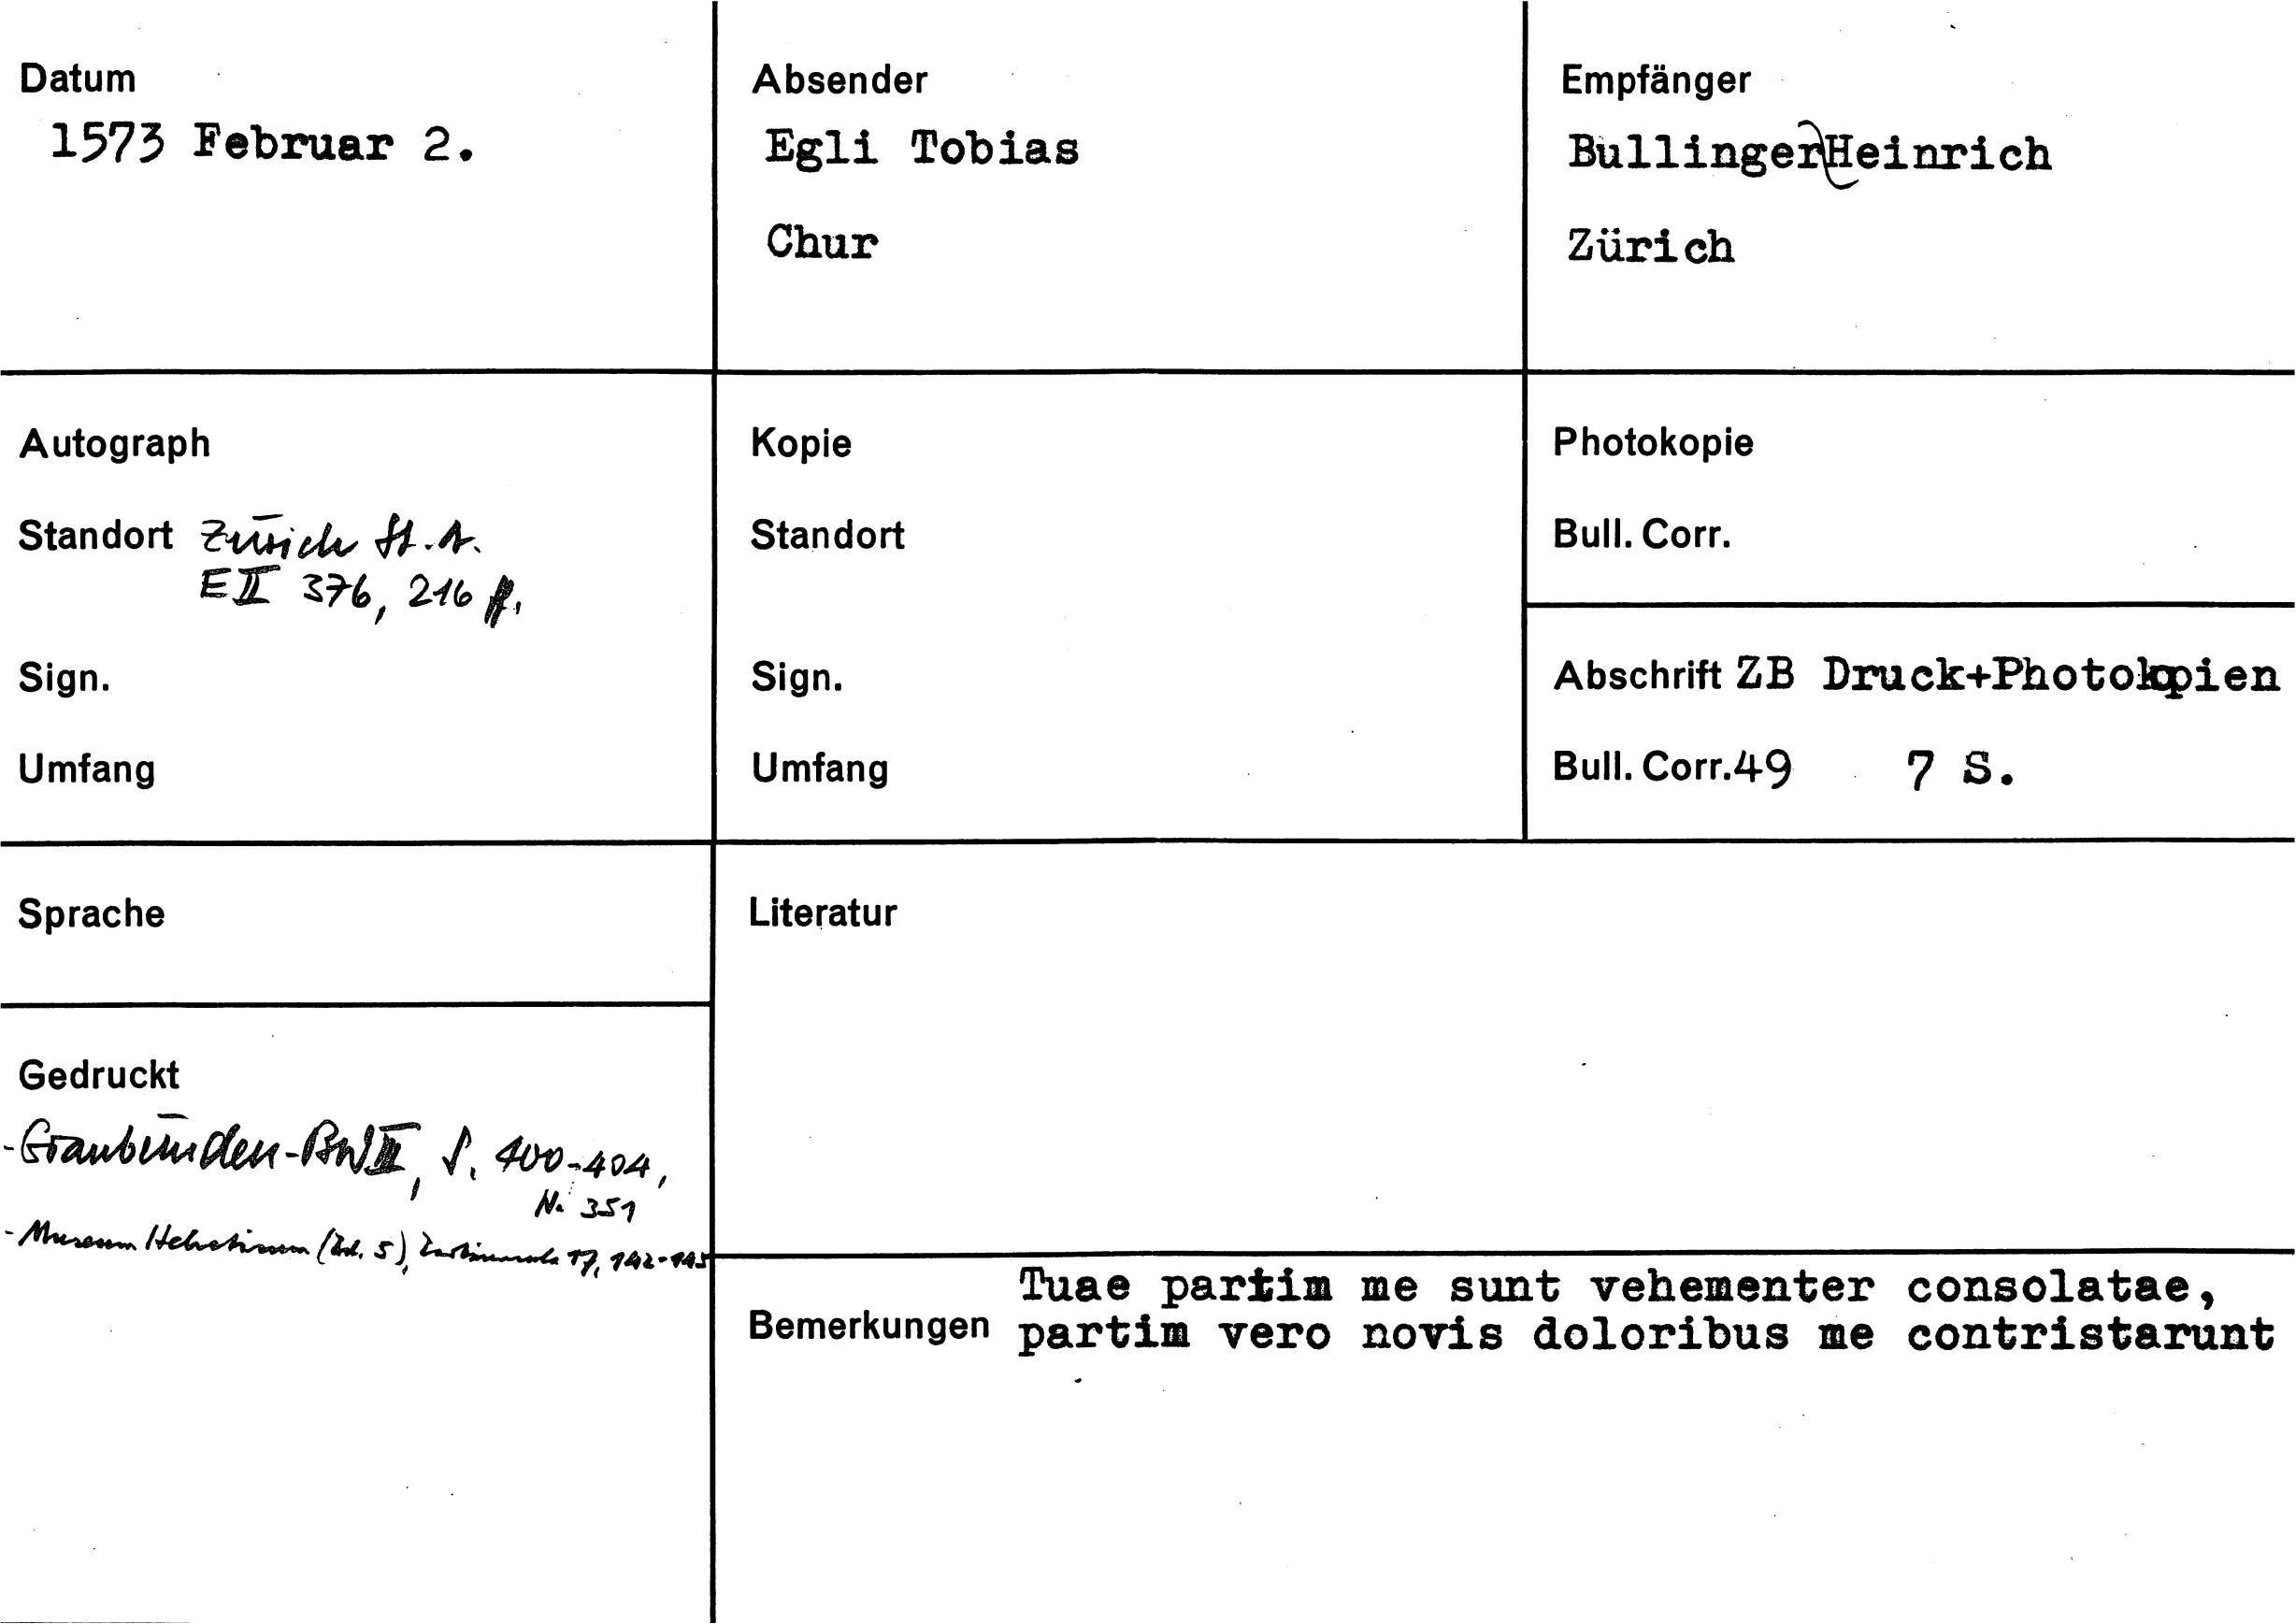 Datum
1573 Februar 2.
Absender
Egli Tobias
Chur
Empfänger
Bullinger Heinrich
Zürich
Autograph
Standort Zürich St.A.
E II 376, 216 f.
Sign.
Umfang
Kopie
Standort
Sign.
Umfang
Photokopie
Bull. Corr.
Abschrift ZB Druck+Photokopien
Bull. Corr. 49 7 S.
Sprache
Literatur
Gedruckt
- Graubünden-BW III, S. 400-404,
N. 351
- Museum Helveticum (Bd. 5), 17, 142-145
Bemerkungen
Tuae partim me sunt vehementer consolatae,
partim vero novis doloribus me contristarunt